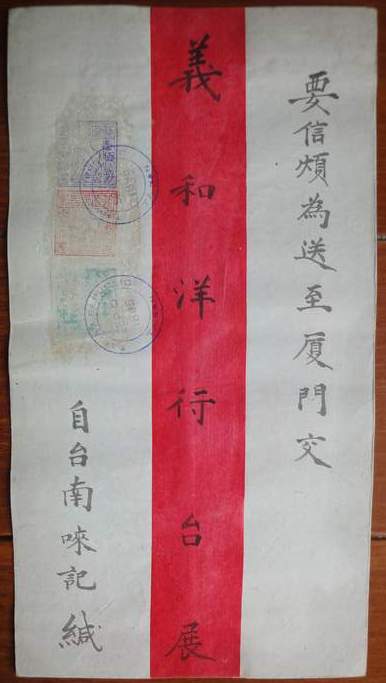 要信煩為送至厦門交
義和洋行台展
自台南唻記緘